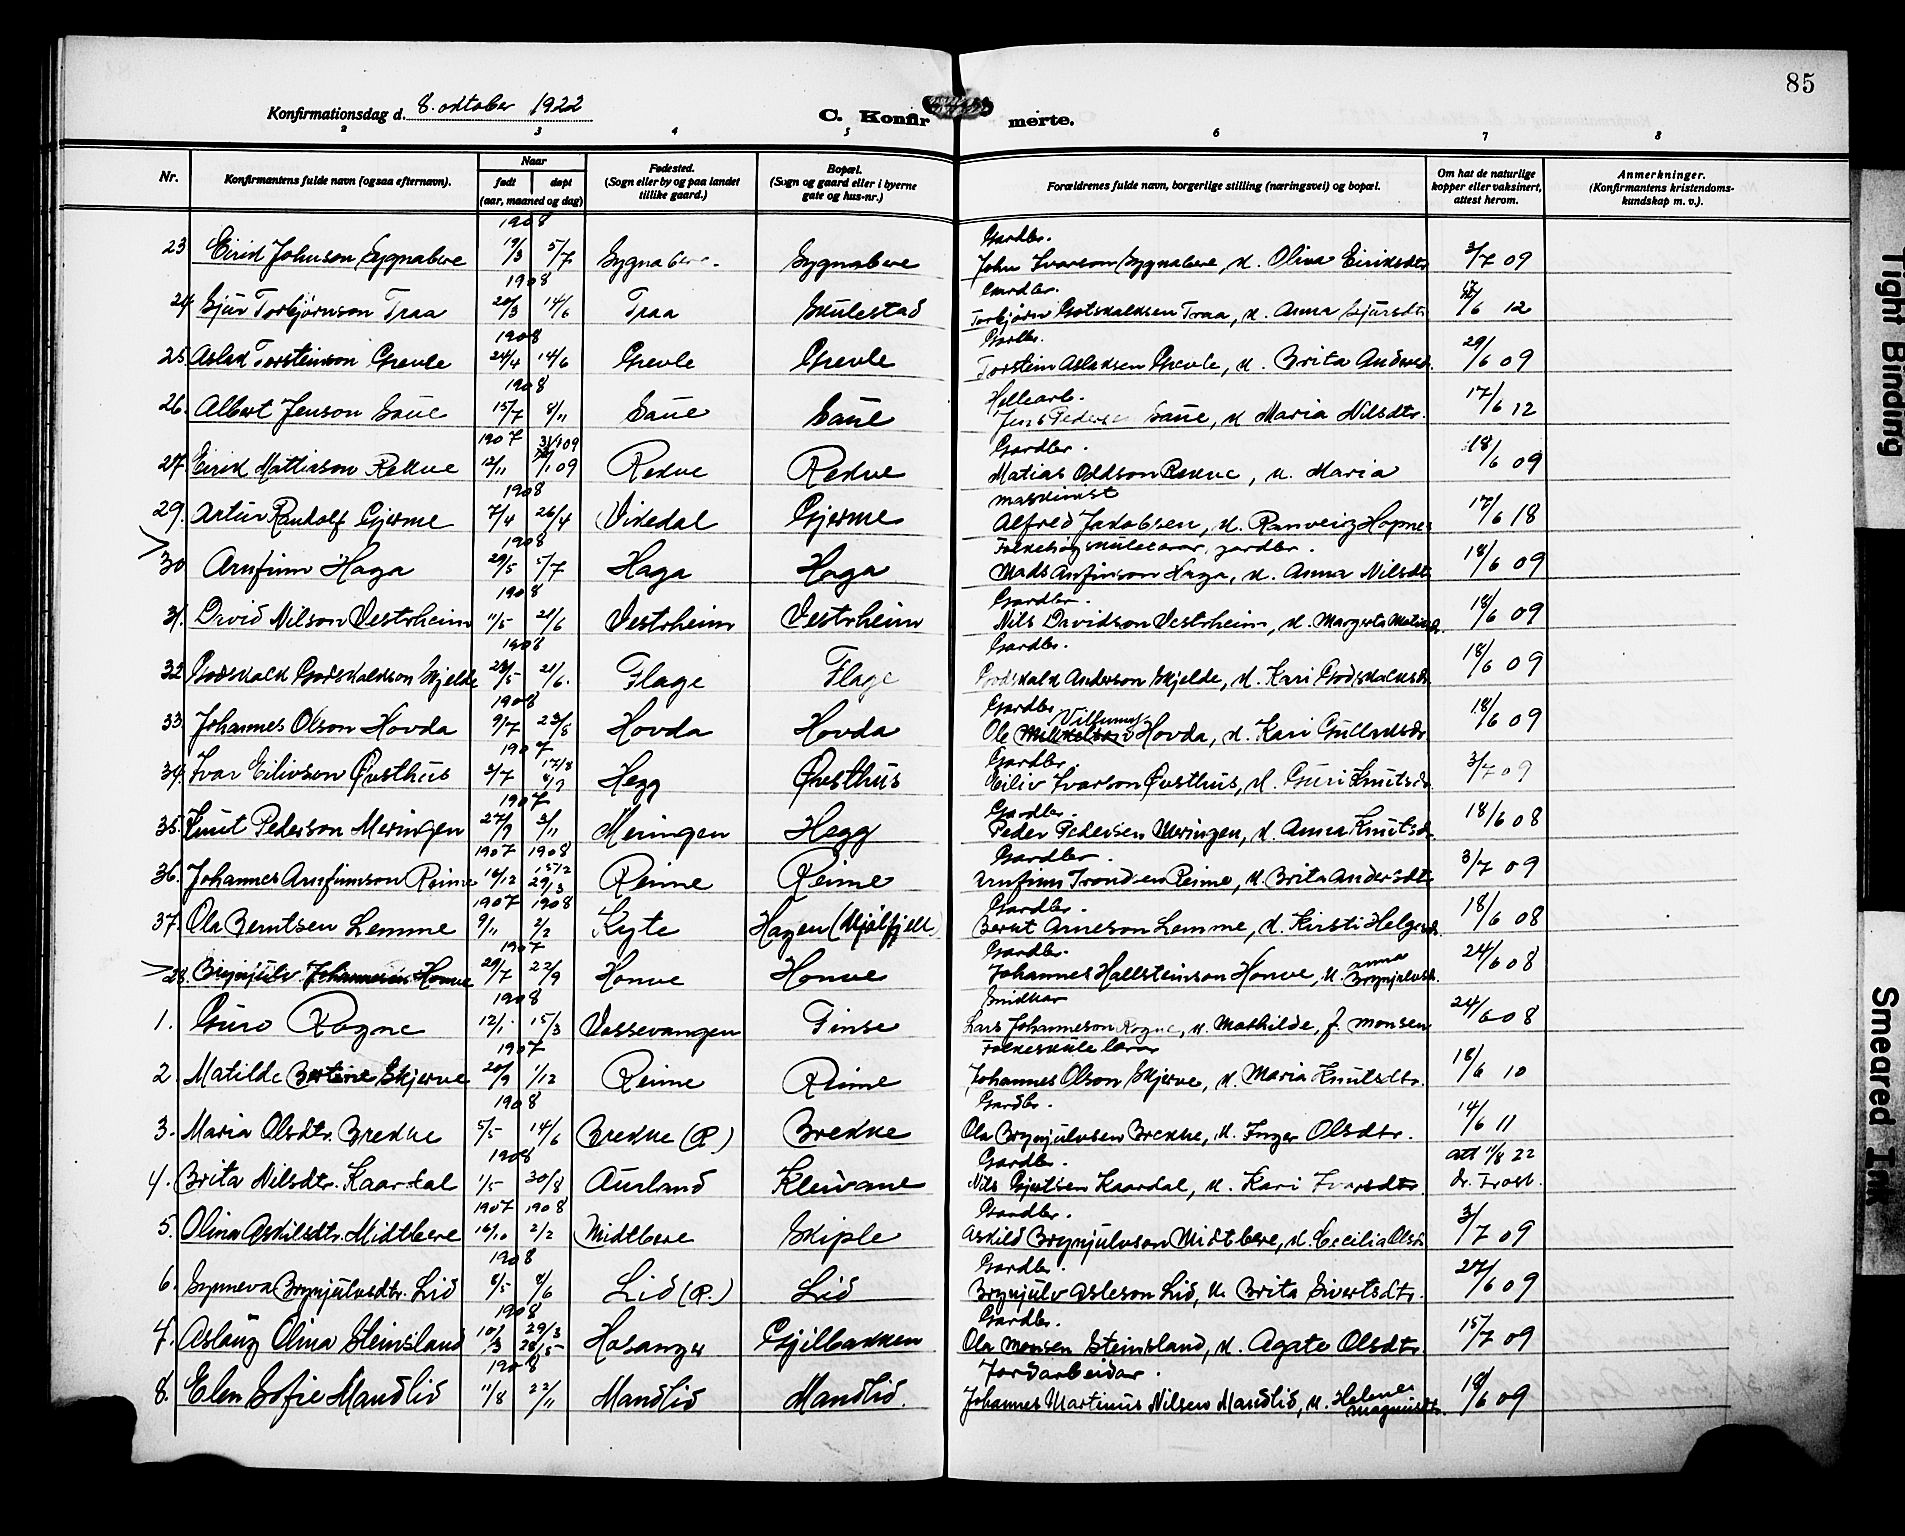 85
Konfirmationsdag d. 8. oktober 1922
C. Konfirmerte.
2 3 4 5 6 7 8
Nr. Konfirmantens fulde navn (ogsaa efternavn). Naar født døpt (aar, maaned og dag) Fødested. (Sogn eller by og paa landet tillike gaard.) Bopæl. (Sogn og gaard eller i byerne gate og hus-nr.) Forældrenes fulde navn, borgerlige stilling (næringsvei) og bopæl. Om hat de naturlige kopper eller vaksinert, attest herom. Anmerkninger. (Konfirmantens kristendomskundskap m. v.).
1908 Gardbr.
23 Eirik Johnson Sygnabere 19/3 5/7 Sygnabere Sygnabere John Ivarson Sygnabere, k. Oliva Eiriksdtr 3/7 09
1908 Gardbr.
24 Sjur Torbjørnson Traa 20/3 14/6 Traa Skulestad Torbjørn Gotskalksen Traa, k. Anna Sjursdtr 17/6 12
1908 Gardbr.
25 Aslak Torsteinson Grevle 24/4 14/6 Grevle Grevle Torstein Aslaksen Grevle, k. Brita Andersd. 29/6 09
1908 Hellearb.
26. Albert Jenson Saue 15/7 8/11 Saue Saue Jens Peders Saue, k Maria Nilsdtr. 17/6 12
1907 31/1 09 Gardbr.
27. Eirik Mathiason Rekve 12/11 /1 09 Rekve Rekve Matias Oddson Rekve, k. Maria 18/6 09
1908 maskinist
29. Artur Randolf Gjerme 7/4 26/4 Vikedal Gjerme Alfred Jakobsen, k. Ranveig Hopnes 17/6 18
1908 Folkehøgskulelærar, gardbr.
30 Arnfinn Haga 29/5 5/7 Haga Haga Mads Arnfinson Haga, k. Anna Nilsdt 18/6 09
1908 Gardbr.
31. David Nilson Vestrheim 11/5 21/6 Vestrheim Vestrheim Nils Davidson Vestrheim, k. Margreta 18/6 09
1908 Gardbr.
32 Godskalk Godskalkson Skjelde 28/5 21/6. Flage Flage Godskalk Anderson Skjelde, k. Kari Godskalksd. 18/6 09
1908 Gardbr.
33 Johannes Olson Hovda 9/7 23/8 Hovda Hovda Ole Hovda, k. Kari Gulleksdtr 18/6 09
1907 17/8 Gardbr.
34. Ivar Eilivson Øvsthus 3/7 8/9 Hegg Øvsthus Eiliv Ivarson Øvsthus, k Guri Knutsd. 3/7 09
1907 Gardbr.
35. Knut Pederson Meringen 27/9 3/11 Meringen Hegg Peder Pedersen Meringen, k Anna Knutsd. 18/6 08
1907 1908 Gardbr.
36. Johannes Arnfinnson Reime 16/12 15/2 29/3 Reime Reime Arnfinn Trondsen Reime, k. Brita Andersdt 3/7 09
1907 1908 Gardbr.
37. Ola Berntsen Lemme 9/11 2/2 Kyte Hagen (Mjølfjell) Bernt Arneson Lemme, k. Kirsti Helgesd. 18/6 08
1907 Gardbr.
28. Brynjulv Johannesen Honve 29/7 22/9 Honve Honve Johannes Hallsteinson Honve, k. Anna Brynjulvsd. 24/6 08
1908 Snidkar
1. Guro Rogne 12/1 15/3 Vossevangen Finse Lars Johanneson Rogne, k. Mathilde, f. Monsen 24/6 08
1907 Folkeskulelærar
2. Matilde Bertine Skjerve 20/9 1/12 Reime Reime Johannes Olson Skjerve, k. Maria Knutsdtr. 18/6 10
1908 Gardbr.
3. Maria Olsdtr. Brekke 5/5 14/6 Brekke (R.) Brekke Ola Brynjulvsen Brekke, k. Inger Olsdtr. 14/6 11
1908 Gardbr. att 11/8 22
4. Brita Nilsdtr. Kaardal 1/5 30/8 Aurland Kleivane Nils Gjutlsen Kaardal, k. Kari Ivarsdtr. dr. Trost.
1907 1908 Gardbr.
5. Olina Askilsdtr. Midtbere 16/10 2/2 Midtbere Skiple Askild Brynjulvson Midtbere, k. Cecilia Olsd. 3/7 09
1908 Gardbr.
6. Synneva Brynjulvsdtr. Lid 8/5 8/6 Lid (R.) Lid Brynjulv Asleson Lid, k. Brita Sivertsdtr. 27/6 09
1908 Gardbr.
7. Aslaug Olina Steinsland 10/3 29/3 28/5 Hosanger Gjilbakken Ola Monsen Steinsland, k. Agate Olsdtr. 15/7 09
1908 Jordarbeidar.
8. Elen Sofie Mandlid 11/8 22/11 Mandlid Mandlid. Johannes Martinus Nilsen Mandlid, k. Helene Magnusdtr. 18/6 09
Tight Binding
Smeared Ink